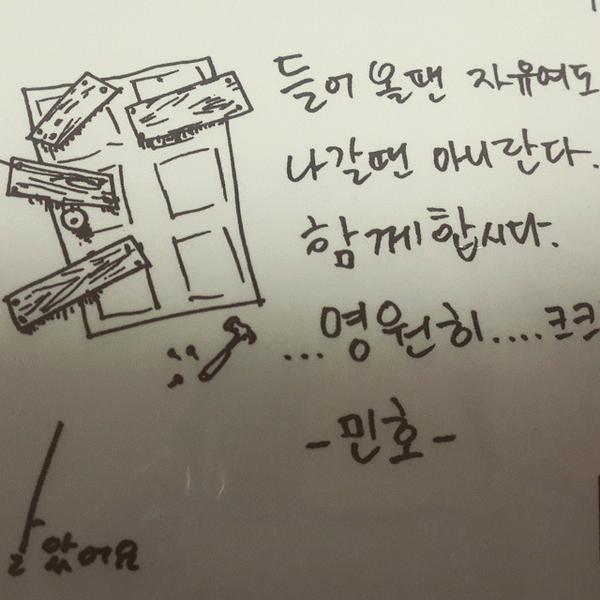 들어 올땐 자유여도
나갈땐 아니란다.
함께합시다.
...영원히....크크
-민호-
았어요